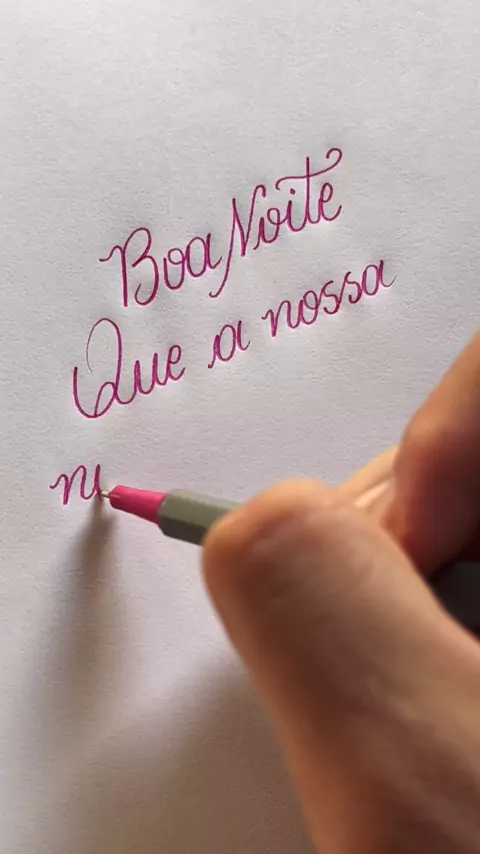 Boa Noite
Que a nossa